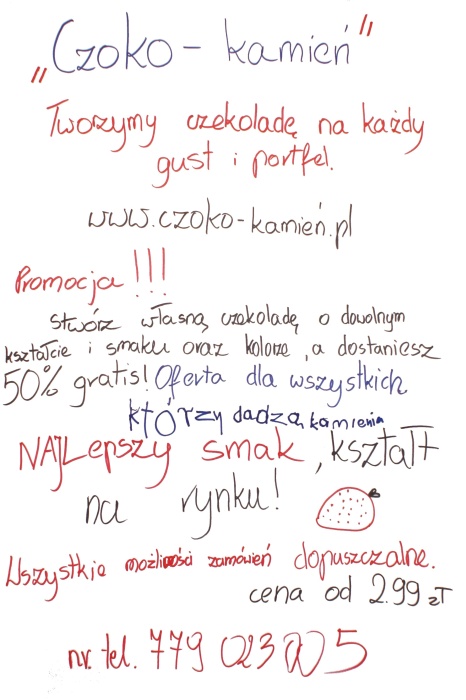 „Czoko - kamień"
Tworzymy czekoladę na każdy
gust i portfel.
www.czoko-kamień.pl
Promocja!!!
stwórz własną czekoladę o dowolnym
kształcie i smaku oraz kolorze, a dostaniesz
50% gratis! Oferta dla wszystkich
którzy dadzą kamienia
NAJLepszy smak, kształt
na rynku!
Wszystkie możliwości zamówień dopuszczalne.
cena od 2.99 zł
nr. tel. 779 023